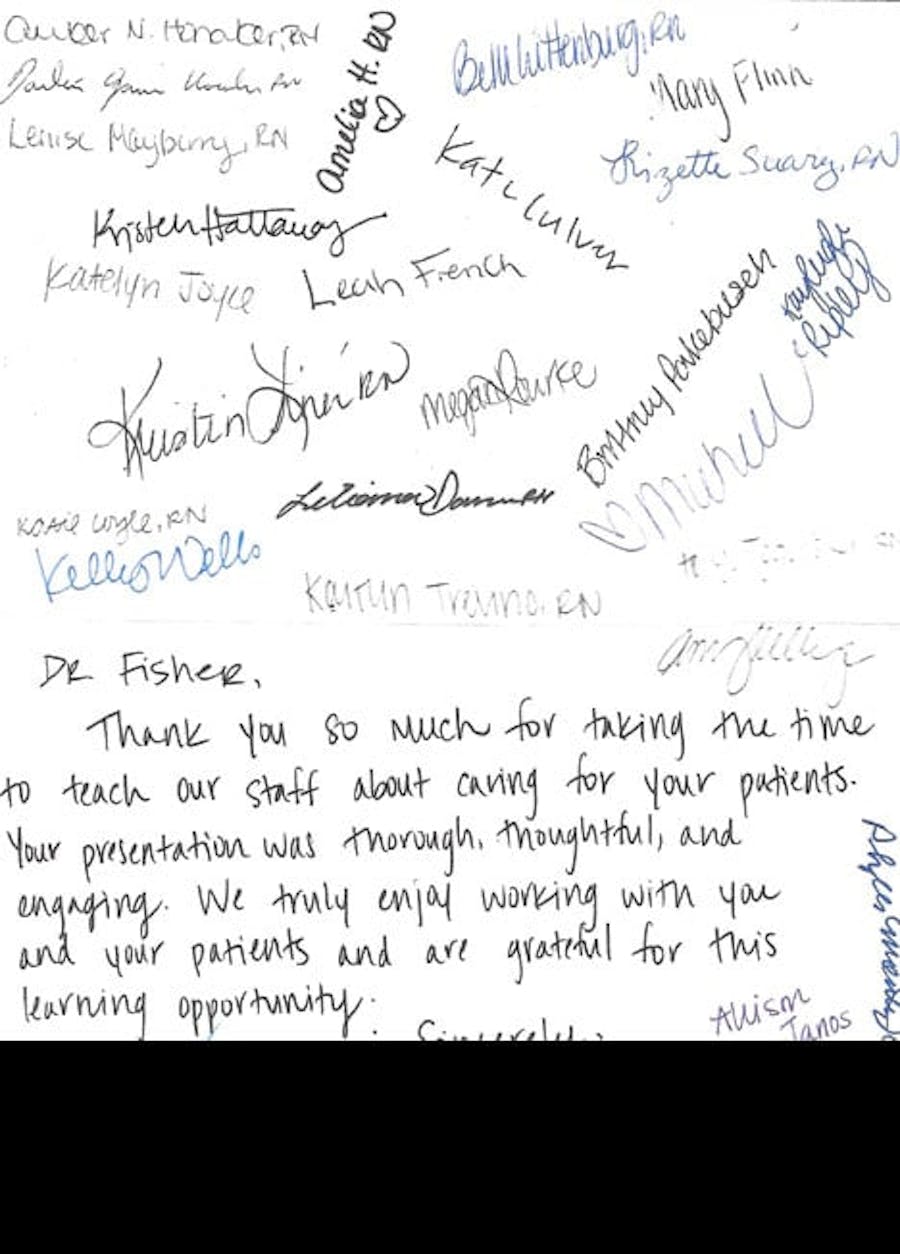 Amber N. Honaker, RN
Amelia H. RN
Mary Flinn
Lenise Mayberry, RN
Lizette Suarez, RN
Kristen Hattaway
Katelyn Joyce
Leah French
Kayleigh
Ripley
Kristin RN
Megan Rourke
Brittney
Michell
Katie Coyle, RN
Kellie Wells
Kaitlin Traina, RN
Dr Fisher,
Thank you so much for taking the time
to teach our staff about caring for your patients.
Your presentation was thorough, thoughtful, and
engaging. We truly enjoy working with you
and your patients and are grateful for this
learning opportunity.
Sincerely,
Allison
Janos